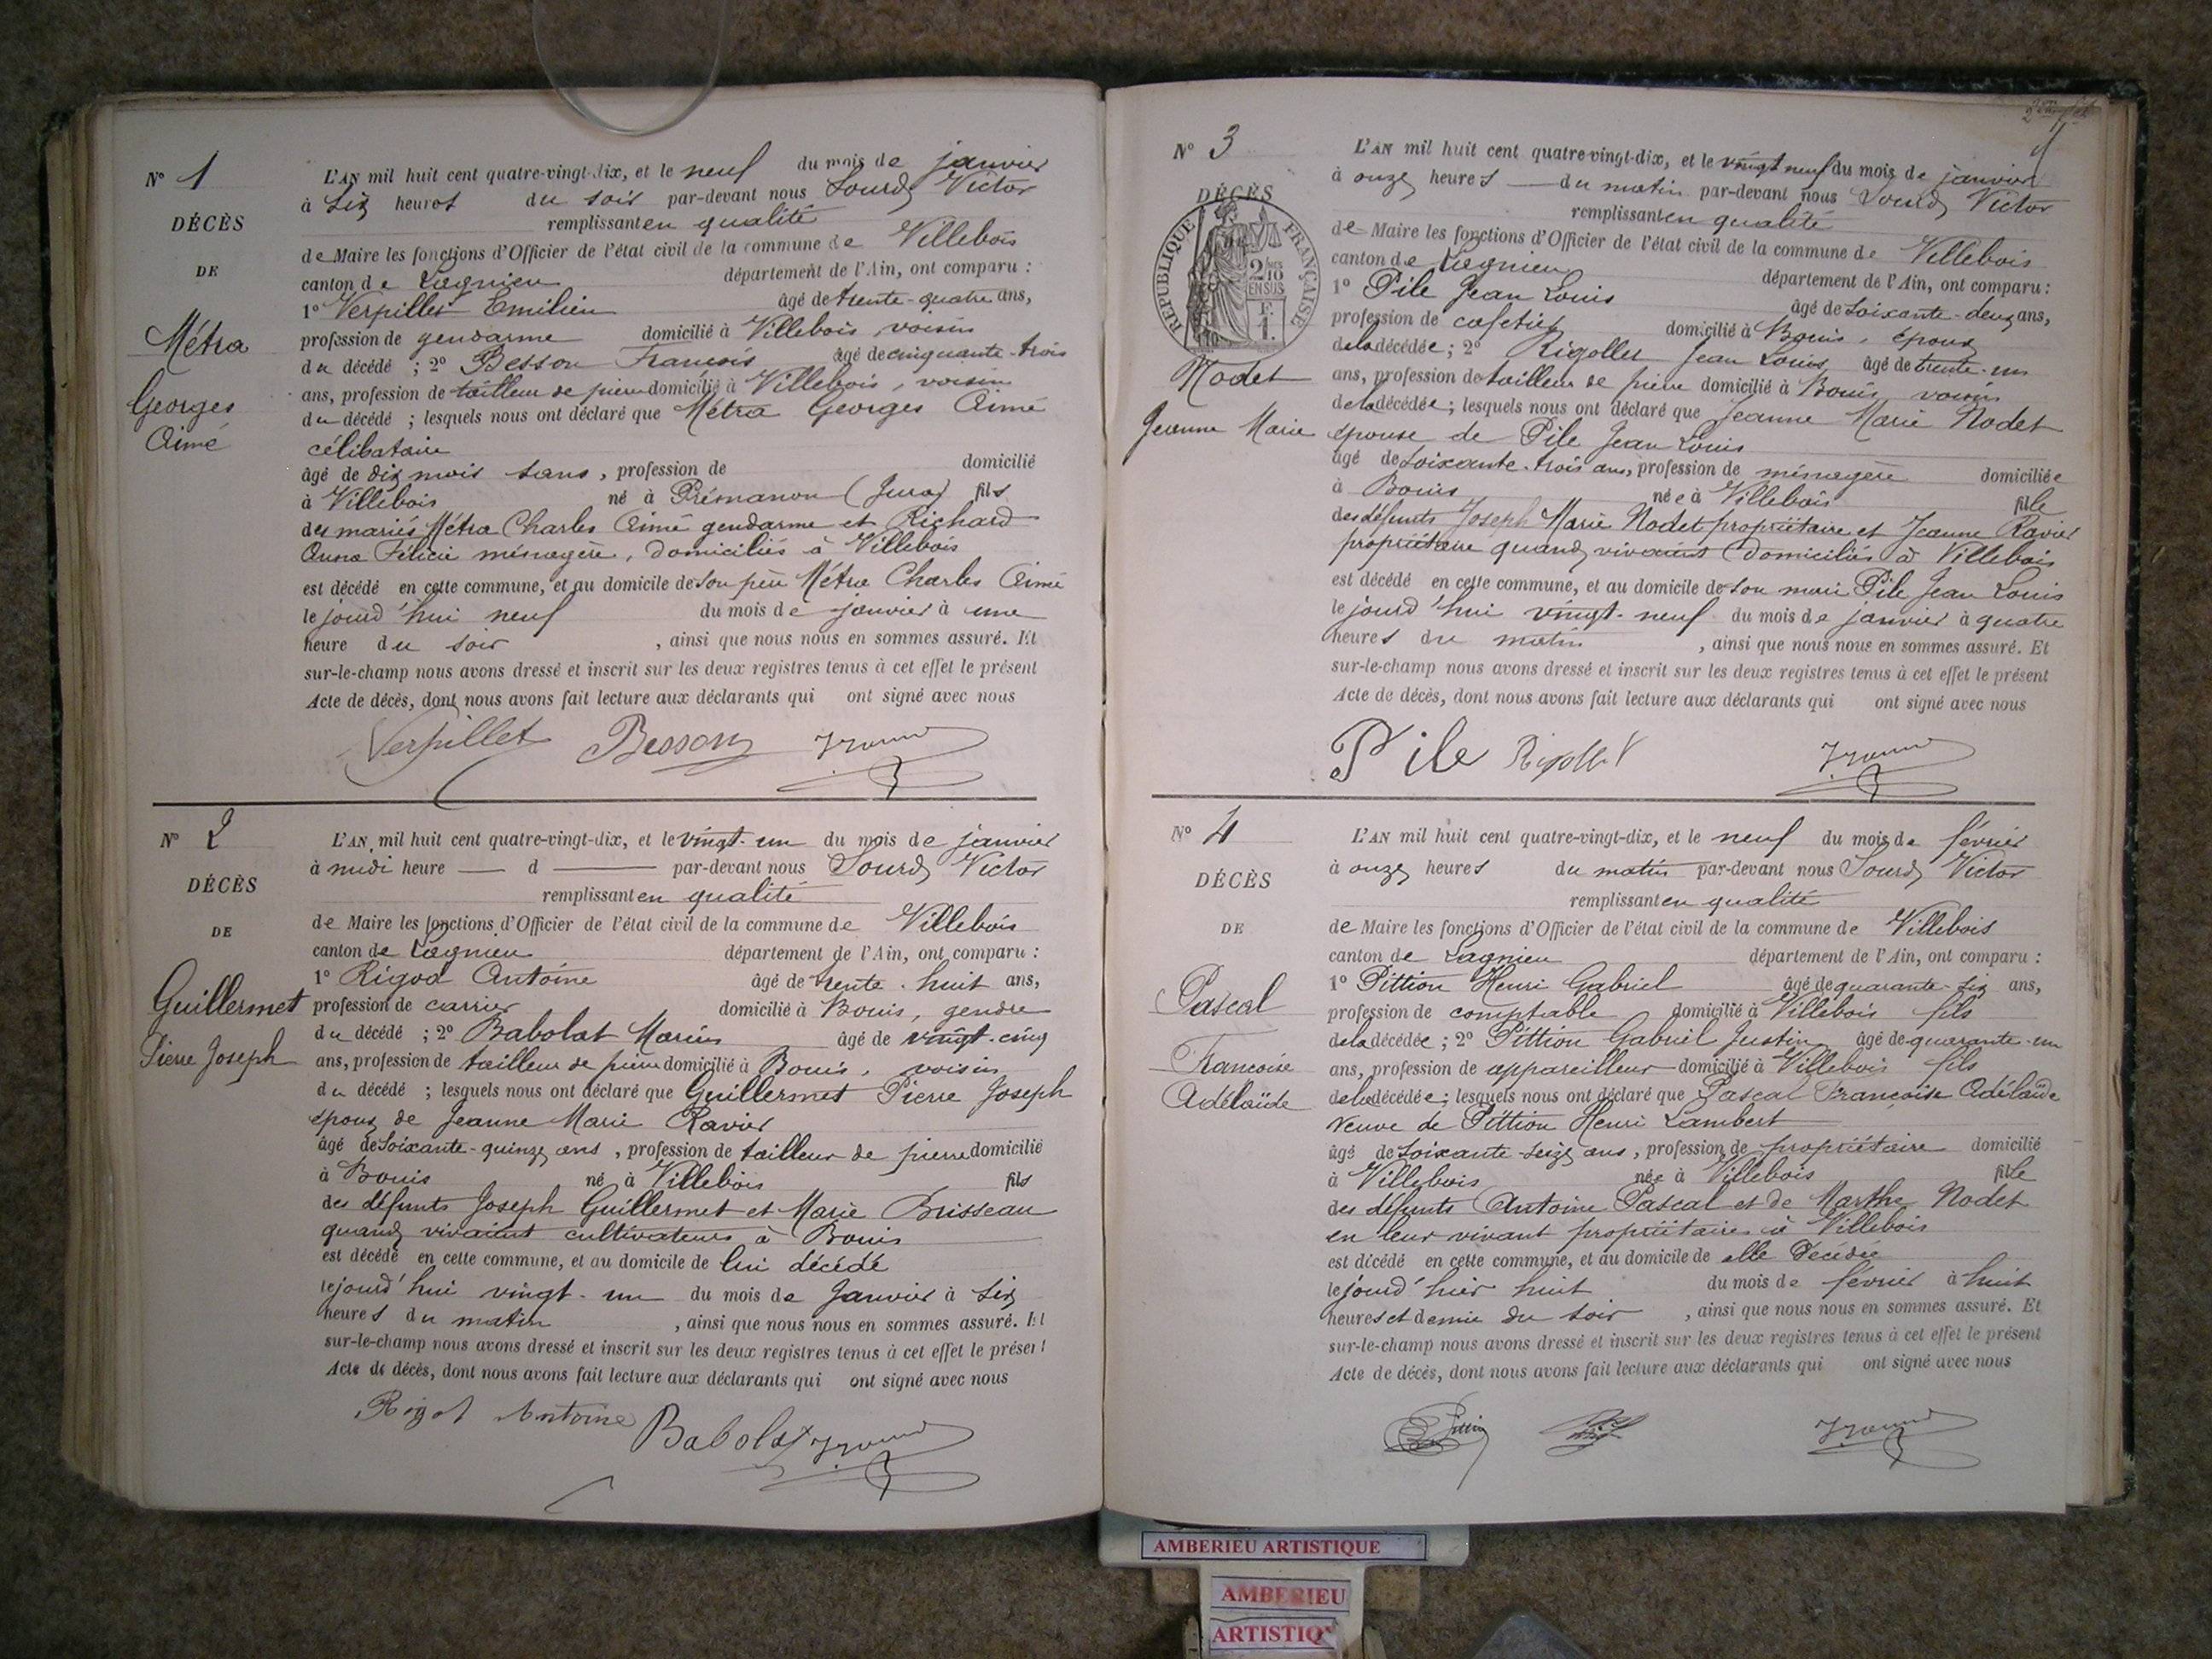 N° 1
DÉCÈS
DE
Métra
Georges
Aimé
L'AN mil huit cent quatre-vingt-dix, et le neuf du mois de janvier
à six heures du soir par-devant nous Sourd Victor
remplissant en qualité
de Maire les fonctions d'Officier de l'état civil de la commune de Villebois
canton de Lagnieu département de l'Ain, ont comparu :
1° Verpillet Emilien âgé de trente-quatre ans,
profession de gendarme domicilié à Villebois, voisin
du décédé ; 2° Besson François âgé de cinquante-trois
ans, profession de tailleur de pierre domicilié à Villebois, voisin
du décédé ; lesquels nous ont déclaré que Métra Georges Aimé
célibataire
âgé de dix mois sans, profession de domicilié
à Villebois né à Prémanon (Jura) fils
des mariés Métra Charles Aimé gendarme et Richard
Anna Félicie ménagère, domiciliés à Villebois
est décédé en cette commune, et au domicile de son père Métra Charles Aimé
le jourd'hui neuf du mois de janvier à une
heure du soir , ainsi que nous nous en sommes assuré. Et
sur-le-champ nous avons dressé et inscrit sur les deux registres tenus à cet effet le présent
Acte de décès, dont nous avons fait lecture aux déclarants qui ont signé avec nous
Verpillet Besson
N° 2
DÉCÈS
DE
Guillermet
Pierre Joseph
L'AN mil huit cent quatre-vingt-dix, et le vingt-un du mois de janvier
à midi heure d par-devant nous Sourd Victor
remplissant en qualité
de Maire les fonctions d'Officier de l'état civil de la commune de Villebois
canton de Lagnieu département de l'Ain, ont comparu :
1° Rigod Antoine âgé de trente-huit ans,
profession de carrier domicilié à Bouis, gendre
du décédé ; 2° Babolat Marius âgé de vingt-cinq
ans, profession de tailleur de pierre domicilié à Bouis, voisin
du décédé ; lesquels nous ont déclaré que Guillermet Pierre Joseph
époux de Jeanne Marie Ravier
âgé de soixante-quinze ans, profession de tailleur de pierre domicilié
à Bouis né à Villebois fils
des défunts Joseph Guillermet et Marie Brisseau
quand vivaient cultivateurs à Bouis
est décédé en cette commune, et au domicile de lui décédé
le jourd'hui vingt-un du mois de Janvier à six
heures du matin , ainsi que nous nous en sommes assuré. Et
sur-le-champ nous avons dressé et inscrit sur les deux registres tenus à cet effet le présent
Acte de décès, dont nous avons fait lecture aux déclarants qui ont signé avec nous
Rigod Antoine Babolat
N° 3
DÉCÈS
RÉPUBLIQUE FRANÇAISE
2/10 EN SUS
F. 1.
Nodet
Jeanne Marie
L'AN mil huit cent quatre-vingt-dix, et le vingt neuf du mois de janvier
à onze heures du matin par-devant nous Sourd Victor
remplissant en qualité
de Maire les fonctions d'Officier de l'état civil de la commune de Villebois
canton de Lagnieu département de l'Ain, ont comparu :
1° Pile Jean Louis âgé de soixante-deux ans,
profession de cafetier domicilié à Bouis, époux
de la décédée ; 2° Rigollet Jean Louis âgé de trente-un
ans, profession de tailleur de pierre domicilié à Bouis voisin
de la décédée ; lesquels nous ont déclaré que Jeanne Marie Nodet
épouse de Pile Jean Louis
âgé de soixante-trois ans, profession de ménagère domiciliée
à Bouis née à Villebois fille
des défunts Joseph Marie Nodet propriétaire et Jeanne Ravier
propriétaire quand vivaient domiciliés à Villebois
est décédé en cette commune, et au domicile de son mari Pile Jean Louis
le jourd'hui vingt-neuf du mois de janvier à quatre
heures du matin , ainsi que nous nous en sommes assuré. Et
sur-le-champ nous avons dressé et inscrit sur les deux registres tenus à cet effet le présent
Acte de décès, dont nous avons fait lecture aux déclarants qui ont signé avec nous
Pile Rigollet
N° 4
DÉCÈS
DE
Pascal
Françoise
Adélaïde
L'AN mil huit cent quatre-vingt-dix, et le neuf du mois de février
à onze heures du matin par-devant nous Sourd Victor
remplissant en qualité
de Maire les fonctions d'Officier de l'état civil de la commune de Villebois
canton de Lagnieu département de l'Ain, ont comparu :
1° Pittion Henri Gabriel âgé de quarante-six ans,
profession de comptable domicilié à Villebois fils
de la décédée ; 2° Pittion Gabriel Justin âgé de quarante-un
ans, profession de appareilleur domicilié à Villebois fils
de la décédée ; lesquels nous ont déclaré que Pascal Françoise Adélaïde
veuve de Pittion Henri Lambert
âgé de soixante-seize ans, profession de propriétaire domicilié
à Villebois née à Villebois fille
des défunts Antoine Pascal et de Marthe Nodet
en leur vivant propriétaires à Villebois
est décédé en cette commune, et au domicile de elle décédée
le jourd'hier huit du mois de février à huit
heures et demie du soir , ainsi que nous nous en sommes assuré. Et
sur-le-champ nous avons dressé et inscrit sur les deux registres tenus à cet effet le présent
Acte de décès, dont nous avons fait lecture aux déclarants qui ont signé avec nous
Pittion
AMBERIEU ARTISTIQUE
AMBERIEU
ARTISTIQ